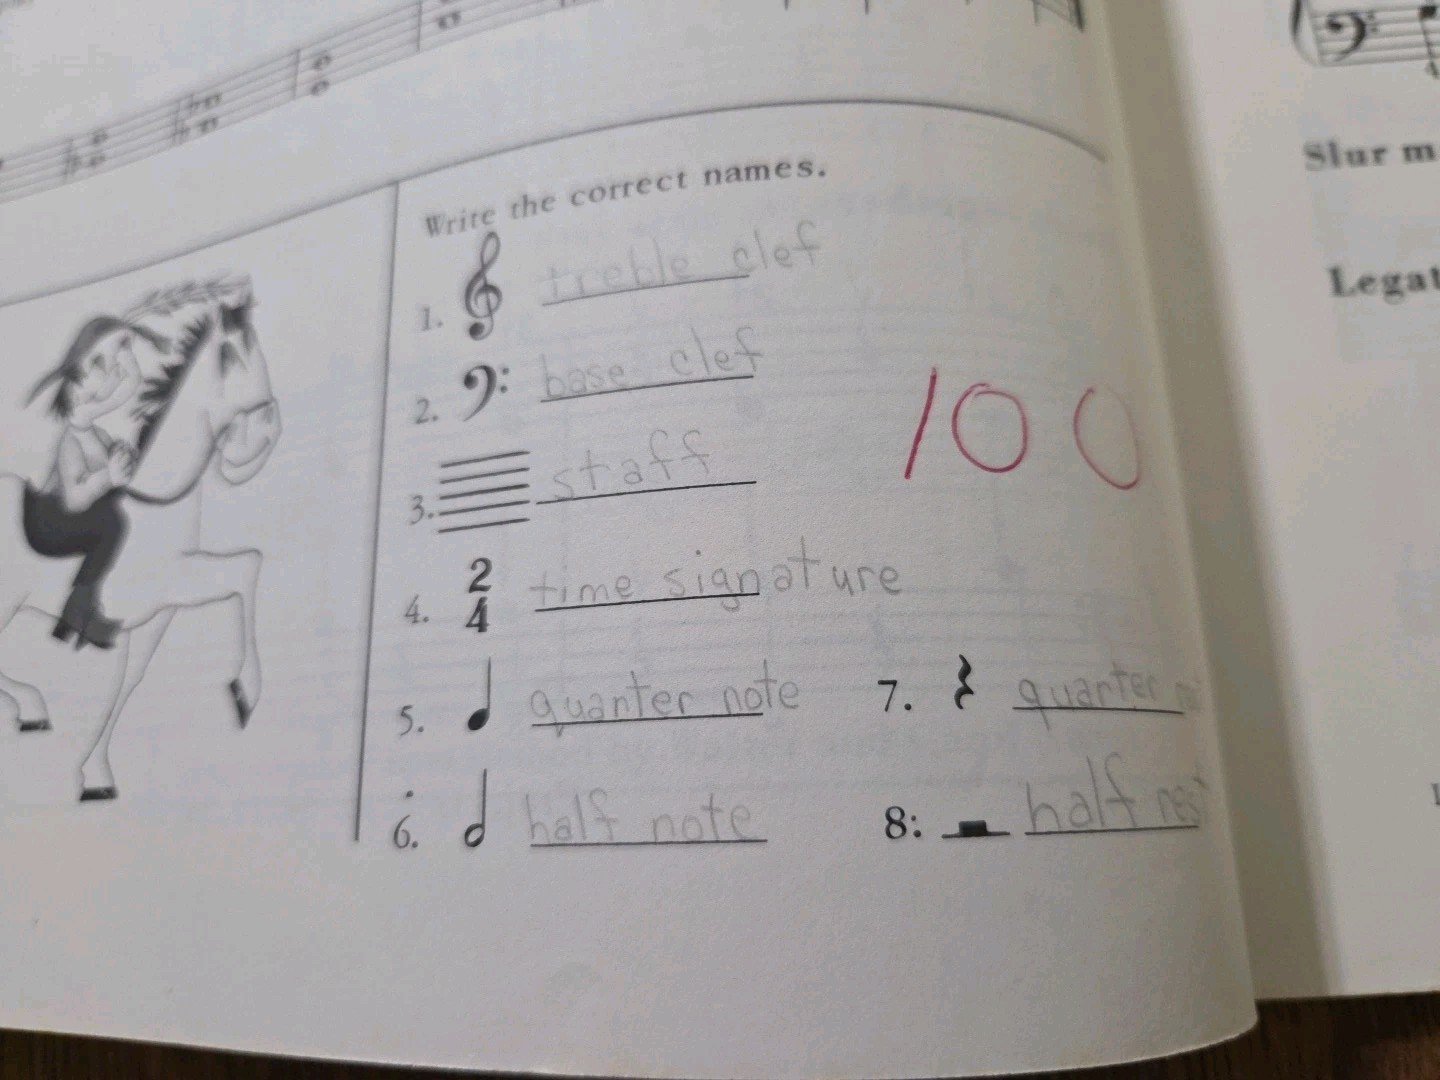 Write the correct names.
1. treble clef
2. base clef
3. staff
100
4. 2/4 time signature
5. quarter note
7. quarter
6. half note
8: half rest
Slur m
Legat